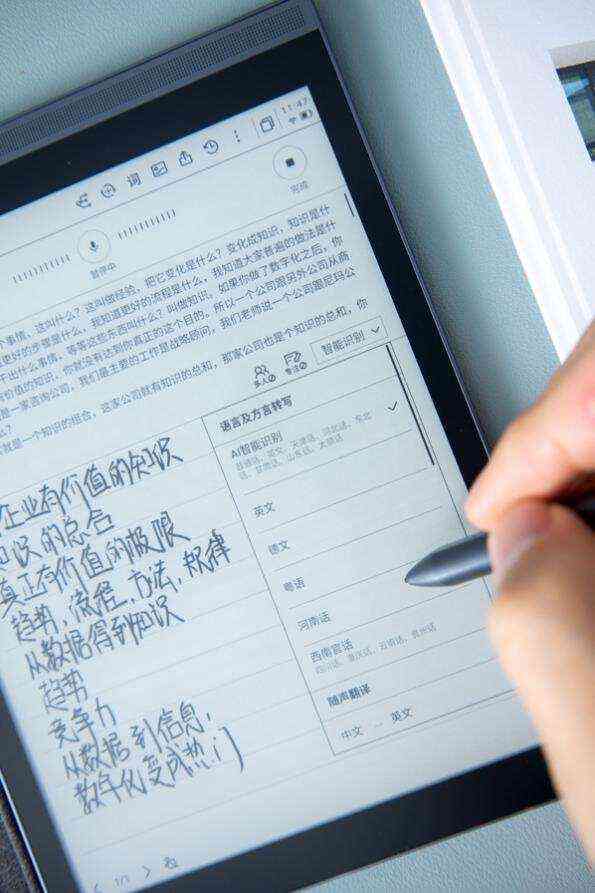 11:47
词
完成
暂停中
个事情，这叫什么？这叫做经验，把它变化是什么？变化成知识，知识是什
更好的步骤是什么，我知道更好的流程是什么，我知道大家普遍的做法是什
干出什么事情，等等这些东西叫什么？叫做知识。如果你做了数字化之后，你
有价值的知识，你就没有达到你真正的这个目的。所以一个公司跟另外公司从商
是一家咨询公司，我们最主要的工作是战略顾问，我们老师说一个公司跟尼玛公
么？
就是一个知识的组合，这家公司就有知识的总和，那家公司也是个知识的总和，你
智能识别
语言及方言转写
AI智能识别
普通话、英文、天津话、河北话、东北
话、甘肃话、山东话、太原话
英文
德文
粤语
河南话
西南官话
四川话、重庆话、云南话、贵州话
随声翻译
中文 → 英文
企业有价值的知识
知识的总合
真正有价值的极限
趋势，流程，方法，规律
从数据得到知识
趋势
竞争力
从数据到信息，
数字化变成热门
1/1